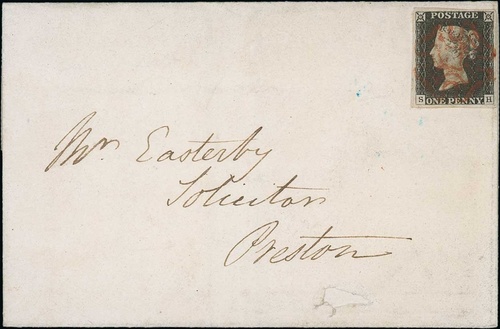 POSTAGE
S H
ONE PENNY
Mr. Easterby
Solicitor
Preston